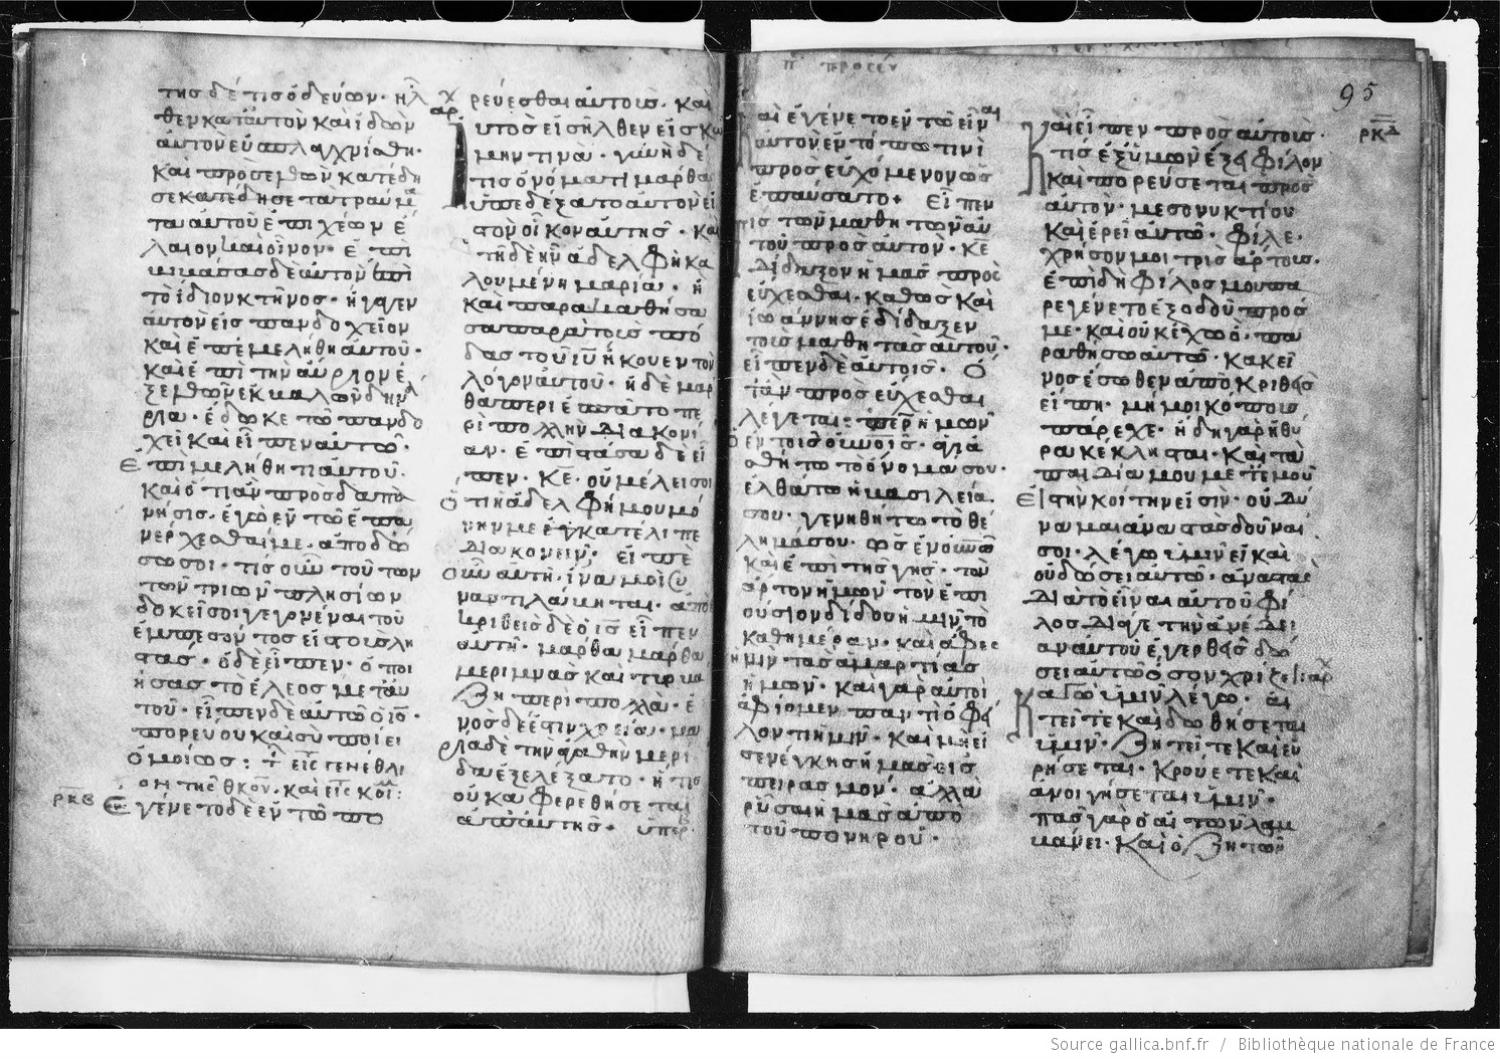 της δέ τις ὁδεύων· ἦλ
θεν κατ αυτὸν καὶ ἰδὼν
αὐτὸν εὐσπλαγχνίσθη·
Καὶ προσελθὼν κατέδη
σε κατέδησε τὰ τραύμα
τα αὐτοῦ ἐπιχέων ἔ
λαιον καὶ οἶνον· ἐπι
βιβάσας δὲ αὐτὸν ἐπὶ
τὸ ἴδιον κτῆνος· ἤγαγεν
αὐτὸν εἰς πανδοχεῖον
καὶ ἐπεμελήθη αὐτοῦ·
καὶ ἐπὶ τὴν αὔριον ἐ
ξελθὼν ἐκβαλὼν δηνά
ρια· ἔδωκε τῷ πανδο
χεῖ καὶ εἶπεν αὐτῷ·
Ἐπιμελήθητι αὐτοῦ·
καὶ ὅτι ἂν προσδαπα
νήσις· ἐγὼ ἐν τῷ ἐπα
νέρχεσθαί με· ἀποδώ
σω σοι· τίς οὖν τούτων
τῶν τριῶν πλησίων
δοκεῖ σοι γεγονέναι τοῦ
ἐμπεσόντος εἰς τοὺς λη
στάς· ὁ δὲ εἶπεν· ὁ ποι
ήσας τὸ ἔλεος μετ αὐ
τοῦ· εἶπεν δὲ αὐτῷ ὁ ις·
πορεύου καὶ σὺ ποίει
ὁμοίως:
τῆς θκου· καὶ εἰς κοι:
ρκβ Ἐγένετο δὲ ἐν τῷ πο
ρεύεσθαι αὐτοὺς· καὶ
αὐτὸς εἰσῆλθεν εἰς κώ
μην τινὰ· γυνὴ δέ
τις ὀνόματι μάρθα
ὑπεδέξατο αὐτὸν εἰς
τὸν οἶκον αὐτῆς· καὶ
τῇδε ἦν ἀδελφὴ κα
λουμένη μαρία· ἣ
καὶ παρακαθήσα
σα παρὰ τοὺς πό
δας τοῦ ιυ ἤκουεν τὸν
λόγον αὐτοῦ· ἡ δὲ μάρ
θα περιεσπᾶτο πε
ρὶ πολλὴν διακονί
αν· ἐπιστᾶσα δὲ εἶ
πεν· κε· οὐ μέλει σοι
ὅτι ἡ ἀδελφή μου μό
νην με ἐγκατέλιπε
διακονεῖν· εἰπὲ
οὖν αὐτῇ· ἵνα μοι συ
ναντιλάβηται· ἀπο
κριθεὶς δὲ ὁ ις εἶπεν
αὐτῇ· μάρθα μάρθα
μεριμνᾶς καὶ τυρβά
ζη περὶ πολλὰ· ἑ
νὸς δέ ἐστιν χρεία· μα
ρία δὲ τὴν ἀγαθὴν μερί
δα ἐξελέξατο· ἥτις
οὐκ ἀφερεθήσεται
ἀπ αὐτῆς· ὑπερ
95
καὶ ἐγένετο ἐν τῷ εἶναι
αὐτὸν ἐν τόπω τινὶ
προσευχόμενον ὡς
ἐπαύσατο+ Εἶπεν
τις τῶν μαθητῶν αὐ
τοῦ πρὸς αὐτόν· κε
δίδαξον ἡμᾶς προς
εύχεσθαι· καθὼς καὶ
ἰωάννης ἐδίδαξεν
τοὺς μαθητὰς αὐτοῦ·
εἶπεν δὲ αὐτοῖς· ὅ
τὰν προσεύχεσθαι
λέγεται: περ ἡμῶν
ὁ ἐν τοῖς οὐνοις· ἁγια
σθήτω τὸ ὄνομά σου·
ἐλθάτω ἡ βασιλεία
σου· γενηθήτω τὸ θέ
λημά σου· ὡς ἐν οὐνῶ
καὶ ἐπὶ τῆς γῆς· τὸν
ἄρτον ἡμῶν τὸν ἐπι
ούσιον δίδου ἡμῖν τὸ
καθημέραν· καὶ ἄφες
ἡμῖν τὰς ἁμαρτίας
ἡμῶν· καὶ γὰρ αὐτοὶ
ἀφίομεν παντὶ ὀφεί
λοντι ἡμῖν· καὶ μὴ εἰ
σενέγκης ἡμᾶς εἰς
πειρασμόν· ἀλλὰ
ρῦσαι ἡμᾶς ἀπὸ
τοῦ πονηροῦ·
Καὶ εἶπεν πρὸς αὐτοὺς· ρκδ
τίς ἐξ ὑμῶν ἕξει φίλον
καὶ πορεύσεται πρὸς
αὐτὸν· μεσονυκτίου
καὶ ἐρεῖ αὐτῷ· φίλε·
χρῆσόν μοι τρὶς ἄρτους·
ἐπιδὴ φίλος μου πα
ρεγένετο ἐξ ὁδοῦ πρός
με· καὶ οὐκ ἔχω ὃ πα
ραθήσω αὐτῷ· κακεῖ
νος ἔσωθεν ἀποκριθεὶς
εἴπη· μή μοι κόπους
πάρεχε· ἤδη γὰρ ἡ θύ
ρα κέκλησται· καὶ τὰ
παιδία μου μετ ἐμοῦ
εἰ τὴν κοίτην εἰσίν· οὐ δύ
ναμαι ἀναστὰς δοῦναί
σοι· λέγω ὑμῖν εἰ καὶ
οὐ δώσει αὐτῷ· ἀναστὰς
διὰ τὸ εἶναι αὐτοῦ φί
λος· διά γε τὴν ἀνέδει
αν αὐτοῦ ἐγερθεὶς δώ
σει αὐτῷ ὅσον χρίζει:
κἀγὼ ὑμῖν λέγω· αἰ
τεῖτε καὶ δωθήσεται
ὑμῖν· ζητεῖτε καὶ εὑ
ρήσεται· κρούετε καὶ
ἀνοιγήσεται ὑμῖν·
πᾶς γὰρ ὁ αἰτῶν λαμ
βάνει· Καὶ ὁ ζητῶν
Source gallica.bnf.fr / Bibliothèque nationale de France